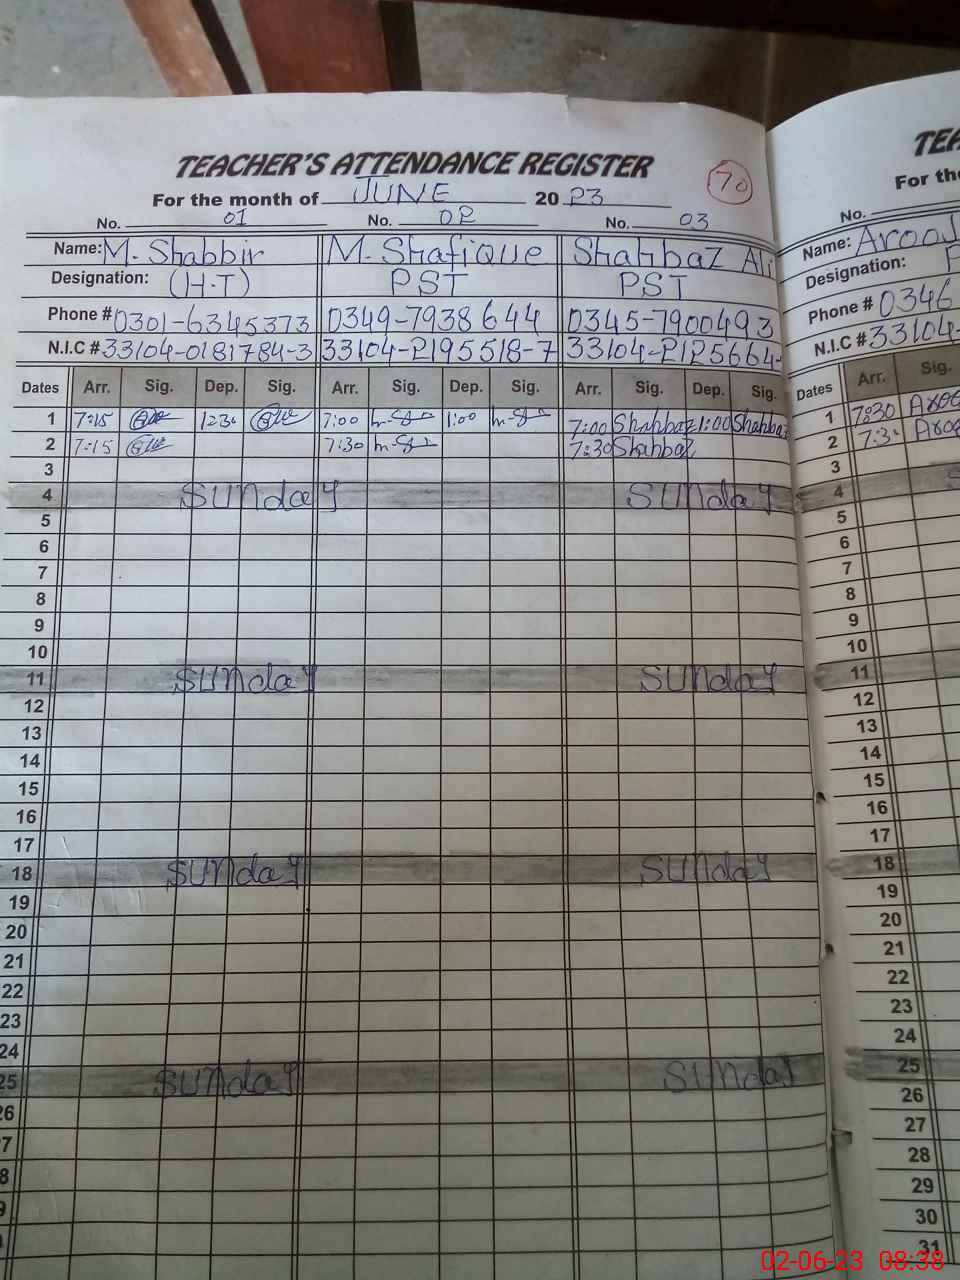 TEACHER'S ATTENDANCE REGISTER
70
For the month of JUNE 2023
No. 01 No. 02 No. 03
Name: M. Shabbir M. Shafique Shahbaz Ali
Designation: (H.T) PST PST
Phone # 0301-6345373 0349-7938644 0345-7900493
N.I.C # 33104-0181784-3 33104-2195518-7 33104-2125664-
Dates Arr. Sig. Dep. Sig. Arr. Sig. Dep. Sig. Arr. Sig. Dep. Sig.
1 7:15 12:30 7:00 1:00 7:00 Shahbaz 1:00 Shahbaz
2 7:15 7:30 7:30 Shahbaz
3
4 SUNday SUNday
5
6
7
8
9
10
11 SUNday SUNday
12
13
14
15
16
17
18 SUNday SUNday
19
20
21
22
23
24
25 SUNday SUNday
26
7
8
9
TEA
For the
No.
Name: Arooj
Designation: P
Phone # 0346
N.I.C # 33104-
Dates Arr. Sig.
1 7:30 Aroo
2 7:3 Aroo
3
4 S
5
6
7
8
9
10
11
12
13
14
15
16
17
18
19
20
21
22
23
24
25
26
27
28
29
30
31
02-06-23 08:38